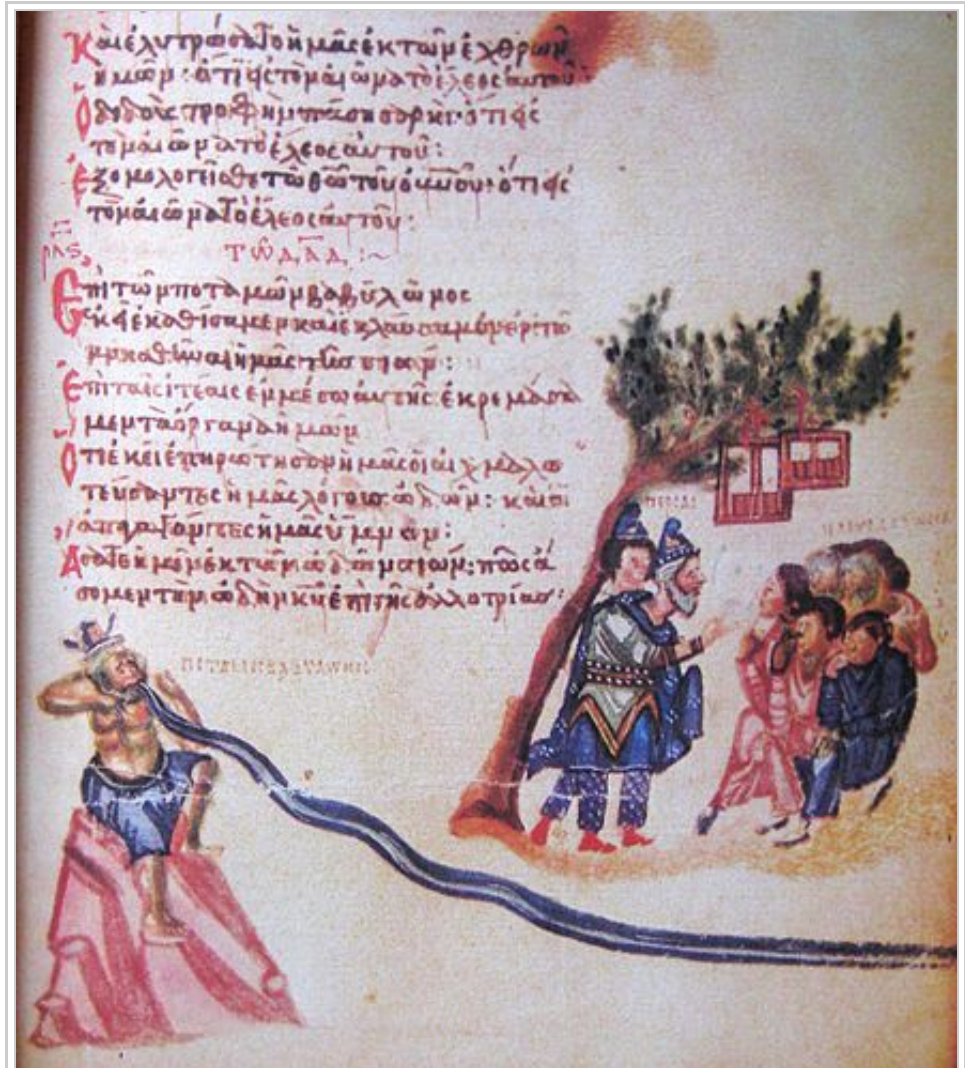 Καὶ ἐλυτρώσατο ἡμᾶς ἐκ τῶν ἐχθρῶν
ἡμῶν· ὅτι εἰς τὸν αἰῶνα τὸ ἔλεος αὐτοῦ:
Ὁ διδοὺς τροφὴν πάση σαρκί· ὅτι εἰς
τὸν αἰῶνα τὸ ἔλεος αὐτοῦ:
Ἐξομολογεῖσθε τῶ θῶ τοῦ οὐνοῦ· ὅτι εἰς
τὸν αἰῶνα τὸ ἔλεος αὐτοῦ:
ρλς τῶ δαδ :~
Ἐπὶ τῶν ποταμῶν βαβυλῶνος
ἐκεῖ ἐκαθίσαμεν καὶ ἐκλαύσαμεν
ἡμᾶς τῆς σιών:
Ἐπὶ ταῖς ἰτέαις ἐν μέσω αὐτῆς ἐκρεμάσα
μεν τὰ ὄργανα ἡμῶν
Ὅτι ἐκεῖ ἐπηρώτησαν ἡμᾶς οἱ αἰχμαλω
τεύσαντες ἡμᾶς λόγους ὠδῶν: καὶ οἱ
ἀπαγαγόντες ἡμᾶς ὕμνον:
Ἄσατε ἡμῖν ἐκ τῶν ὠδῶν σιών: πῶς ἄ
σομεν τὴν ὠδὴν κυ ἐπὶ γῆς ἀλλοτρίας: